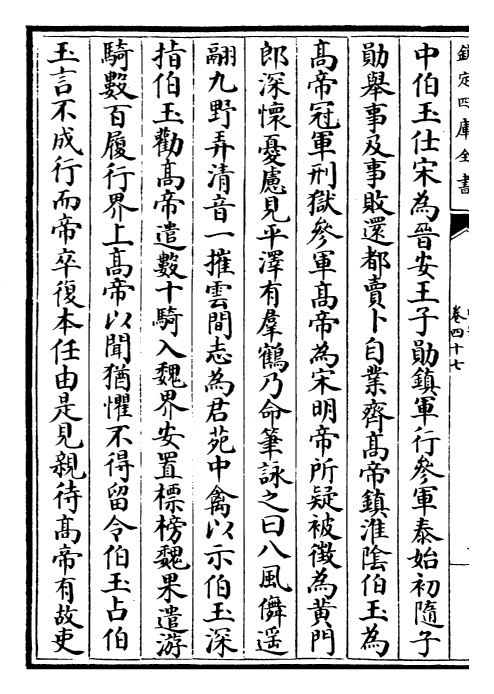 欽定四庫全書
卷四十七
中伯玉仕宋為晉安王子勛鎮軍行參軍泰始初隨子
勛舉事及事敗還都賣卜自業齊髙帝鎮淮陰伯玉為
髙帝冠軍刑獄參軍髙帝為宋明帝所疑被徵為黄門
郎深懷憂慮見平澤有羣鶴乃命筆詠之曰八風儛遥
翮九野弄清音一摧雲間志為君苑中禽以示伯玉深
指伯玉勸髙帝遣數十騎入魏界安置標榜魏果遣游
騎數百履行界上髙帝以聞猶懼不得留令伯玉占伯
玉言不成行而帝卒復本任由是見親待髙帝有故吏